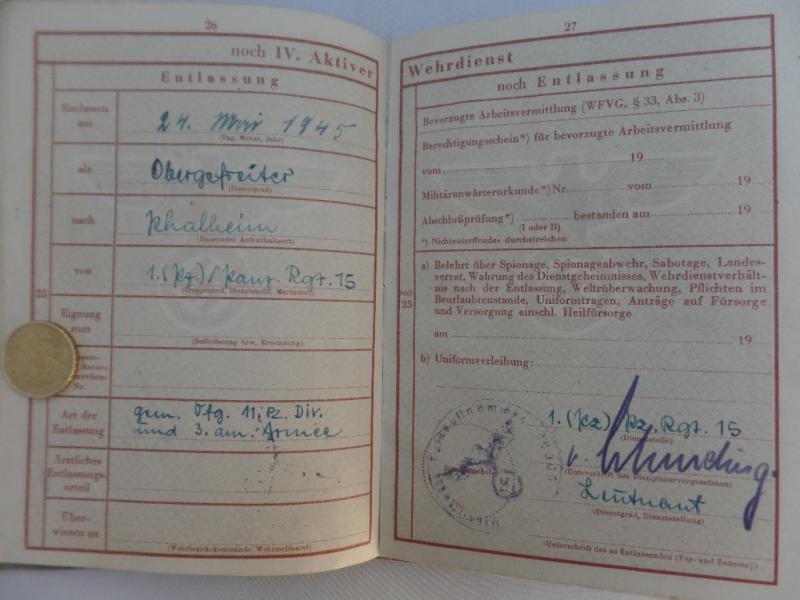 26
noch IV. Aktiver
Entlassung
Entlassen am
24. Mai 1945
(Tag, Monat, Jahr)
als
Obergefreiter
(Dienstgrad)
nach
Khalheim
(Dauernder Aufenthaltsort)
von
1.(Pz)/Panz. Rgt. 15
(Truppenteil, Dienststelle, Marineteil)
25
Eignung zum
(Beförderung bzw. Ernennung)
Nr.
Art der Entlassung
gem. Vfg. 11. Pz. Div.
und 3. am. Armee
Ärztliches Entlassungs-
urteil
Über-
wiesen an
(Wehrbezirkskommando, Wehrmeldeamt)
27
Wehrdienst
noch Entlassung
Bevorzugte Arbeitsvermittlung (WFVG, § 33, Abs. 3)
Berechtigungsschein*) für bevorzugte Arbeitsvermittlung
vom 19
Militäranwärterurkunde*) Nr. vom 19
Abschlußprüfung*) bestanden am 19
(I oder II)
*) Nichtzutreffendes durchstreichen
noch 25
a) Belehrt über Spionage, Spionageabwehr, Sabotage, Landes-
verrat, Wahrung des Dienstgeheimnisses, Wehrdienstverhält-
nis nach der Entlassung, Weltrüberwachung, Pflichten im
Beurlaubtenstande, Uniformtragen, Anträge auf Fürsorge
und Versorgung einschl. Heilfürsorge
am 19
b) Uniformverleihung:
1.(Pz)/Pz. Rgt. 15
(Dienststelle)
(Unterschrift des Disziplinarvorgesetzten)
Leutnant
(Dienstgrad, Dienststellung)
(Unterschrift des zu Entlassenden [Vor- und Zuname])